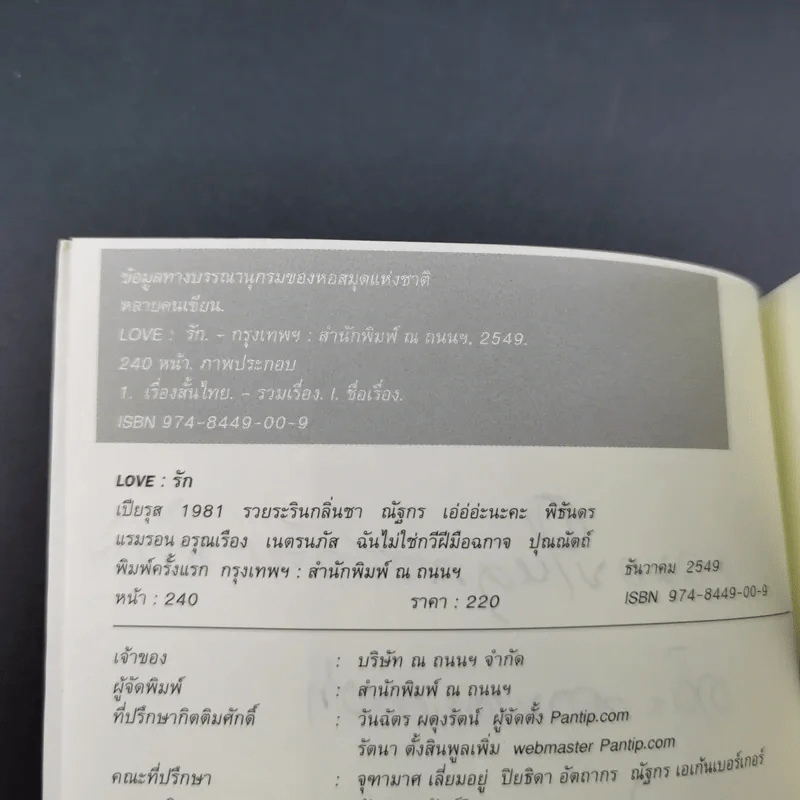 ข้อมูลทางบรรณานุกรมของหอสมุดแห่งชาติ
หลายคนเขียน.
LOVE : รัก. - กรุงเทพฯ : สำนักพิมพ์ ณ ถนนฯ, 2549.
240 หน้า. ภาพประกอบ
1. เรื่องสั้นไทย. - รวมเรื่อง. I. ชื่อเรื่อง.
ISBN 974-8449-00-9
LOVE : รัก
เปียรุส 1981 รวยระรินกลิ่นชา ณัฐกร เอ่อ่อ่ะนะคะ พิธันดร
แรมรอน อรุณเรือง เนตรนภัส ฉันไม่ใช่กวีฝีมือฉกาจ ปุณณัตถ์
พิมพ์ครั้งแรก กรุงเทพฯ : สำนักพิมพ์ ณ ถนนฯ ธันวาคม 2549
หน้า : 240 ราคา : 220 ISBN 974-8449-00-9
เจ้าของ : บริษัท ณ ถนนฯ จำกัด
ผู้จัดพิมพ์ : สำนักพิมพ์ ณ ถนนฯ
ที่ปรึกษากิตติมศักดิ์ : วันฉัตร ผดุงรัตน์ ผู้จัดตั้ง Pantip.com
รัตนา ตั้งสินพูลเพิ่ม webmaster Pantip.com
คณะที่ปรึกษา : จุฑามาศ เลี่ยมอยู่ ปิยธิดา อัตถากร ณัฐกร เอเก้นเบอร์เกอร์